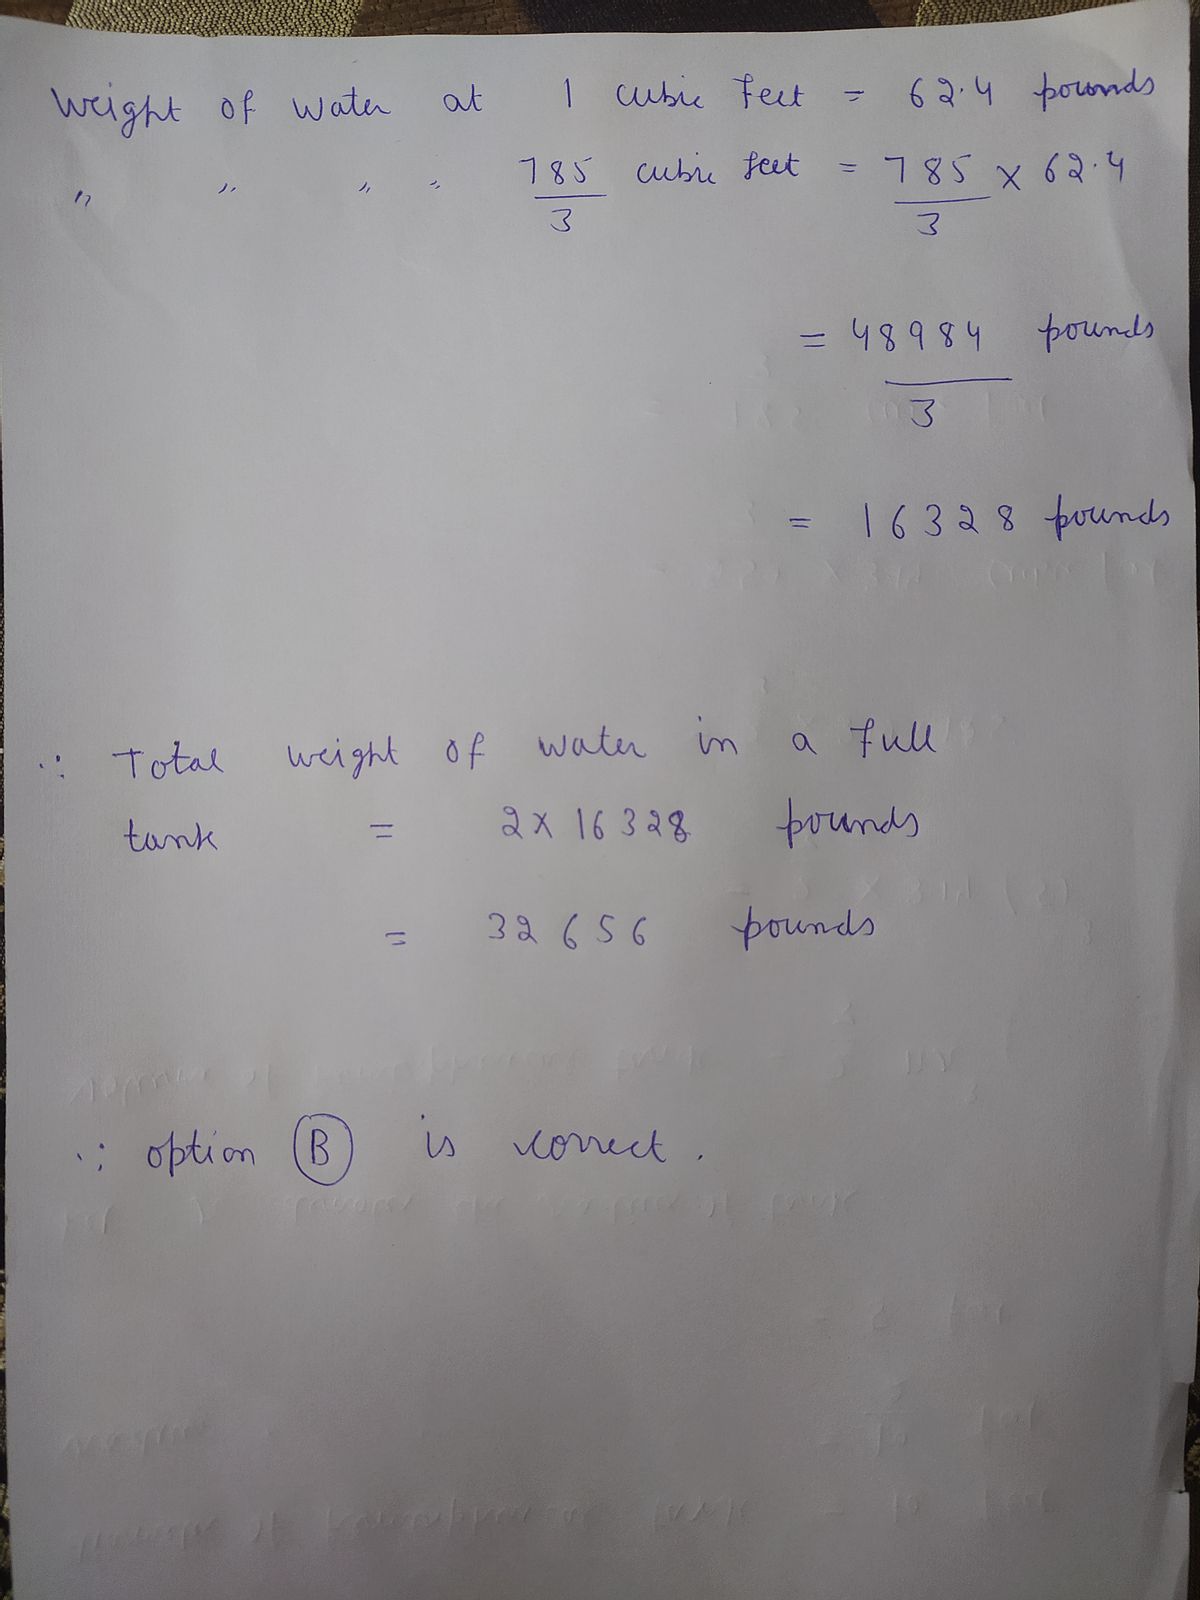 Weight of water at 1 cubic feet = 62.4 pounds
" " " " 785/3 cubic feet = 785/3 × 62.4
= 48984/3 pounds
= 16328 pounds
∴ Total weight of water in a full
tank = 2 × 16328 pounds
= 32656 pounds
∴ option B is correct.